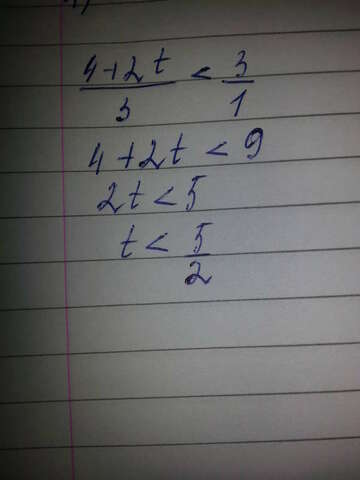 4+2t/3 < 3/1
4+2t < 9
2t < 5
t < 5/2